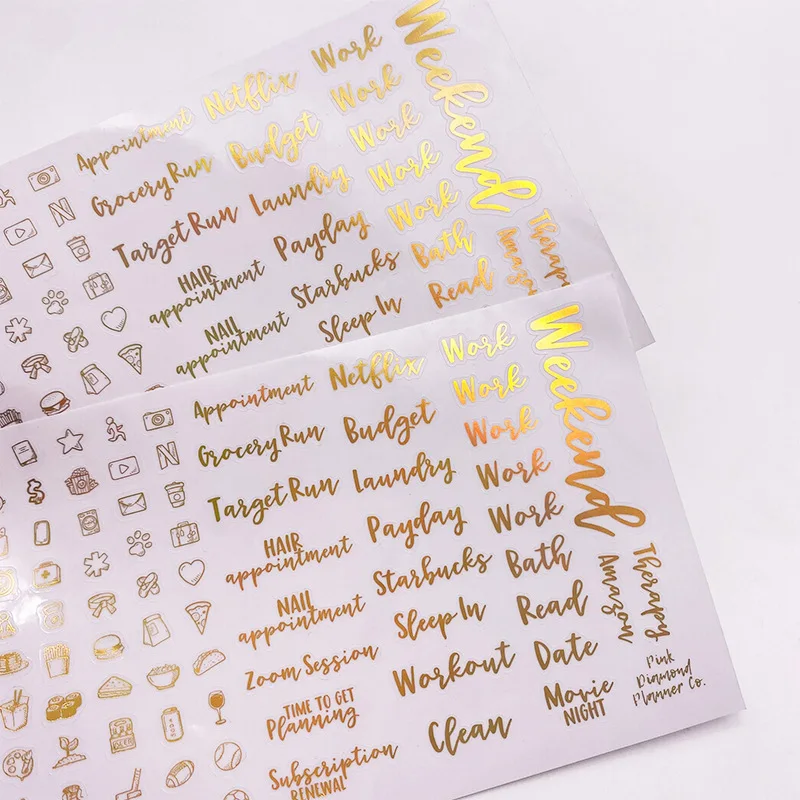 Appointment
Netflix
Work
Weekend
Grocery Run
Budget
Work
Target Run
Laundry
Work
HAIR
appointment
Payday
Work
NAIL
appointment
Starbucks
Work
Sleep In
Bath
Read
Therapy
Amazon
Appointment
Netflix
Work
Weekend
Grocery Run
Budget
Work
Target Run
Laundry
Work
HAIR
appointment
Payday
Work
NAIL
appointment
Starbucks
Work
Zoom Session
Sleep In
Bath
TIME TO GET
Planning
Workout
Read
Subscription
RENEWAL
Clean
Date
Movie
NIGHT
Therapy
Amazon
Pink
Diamond
Planner Co.